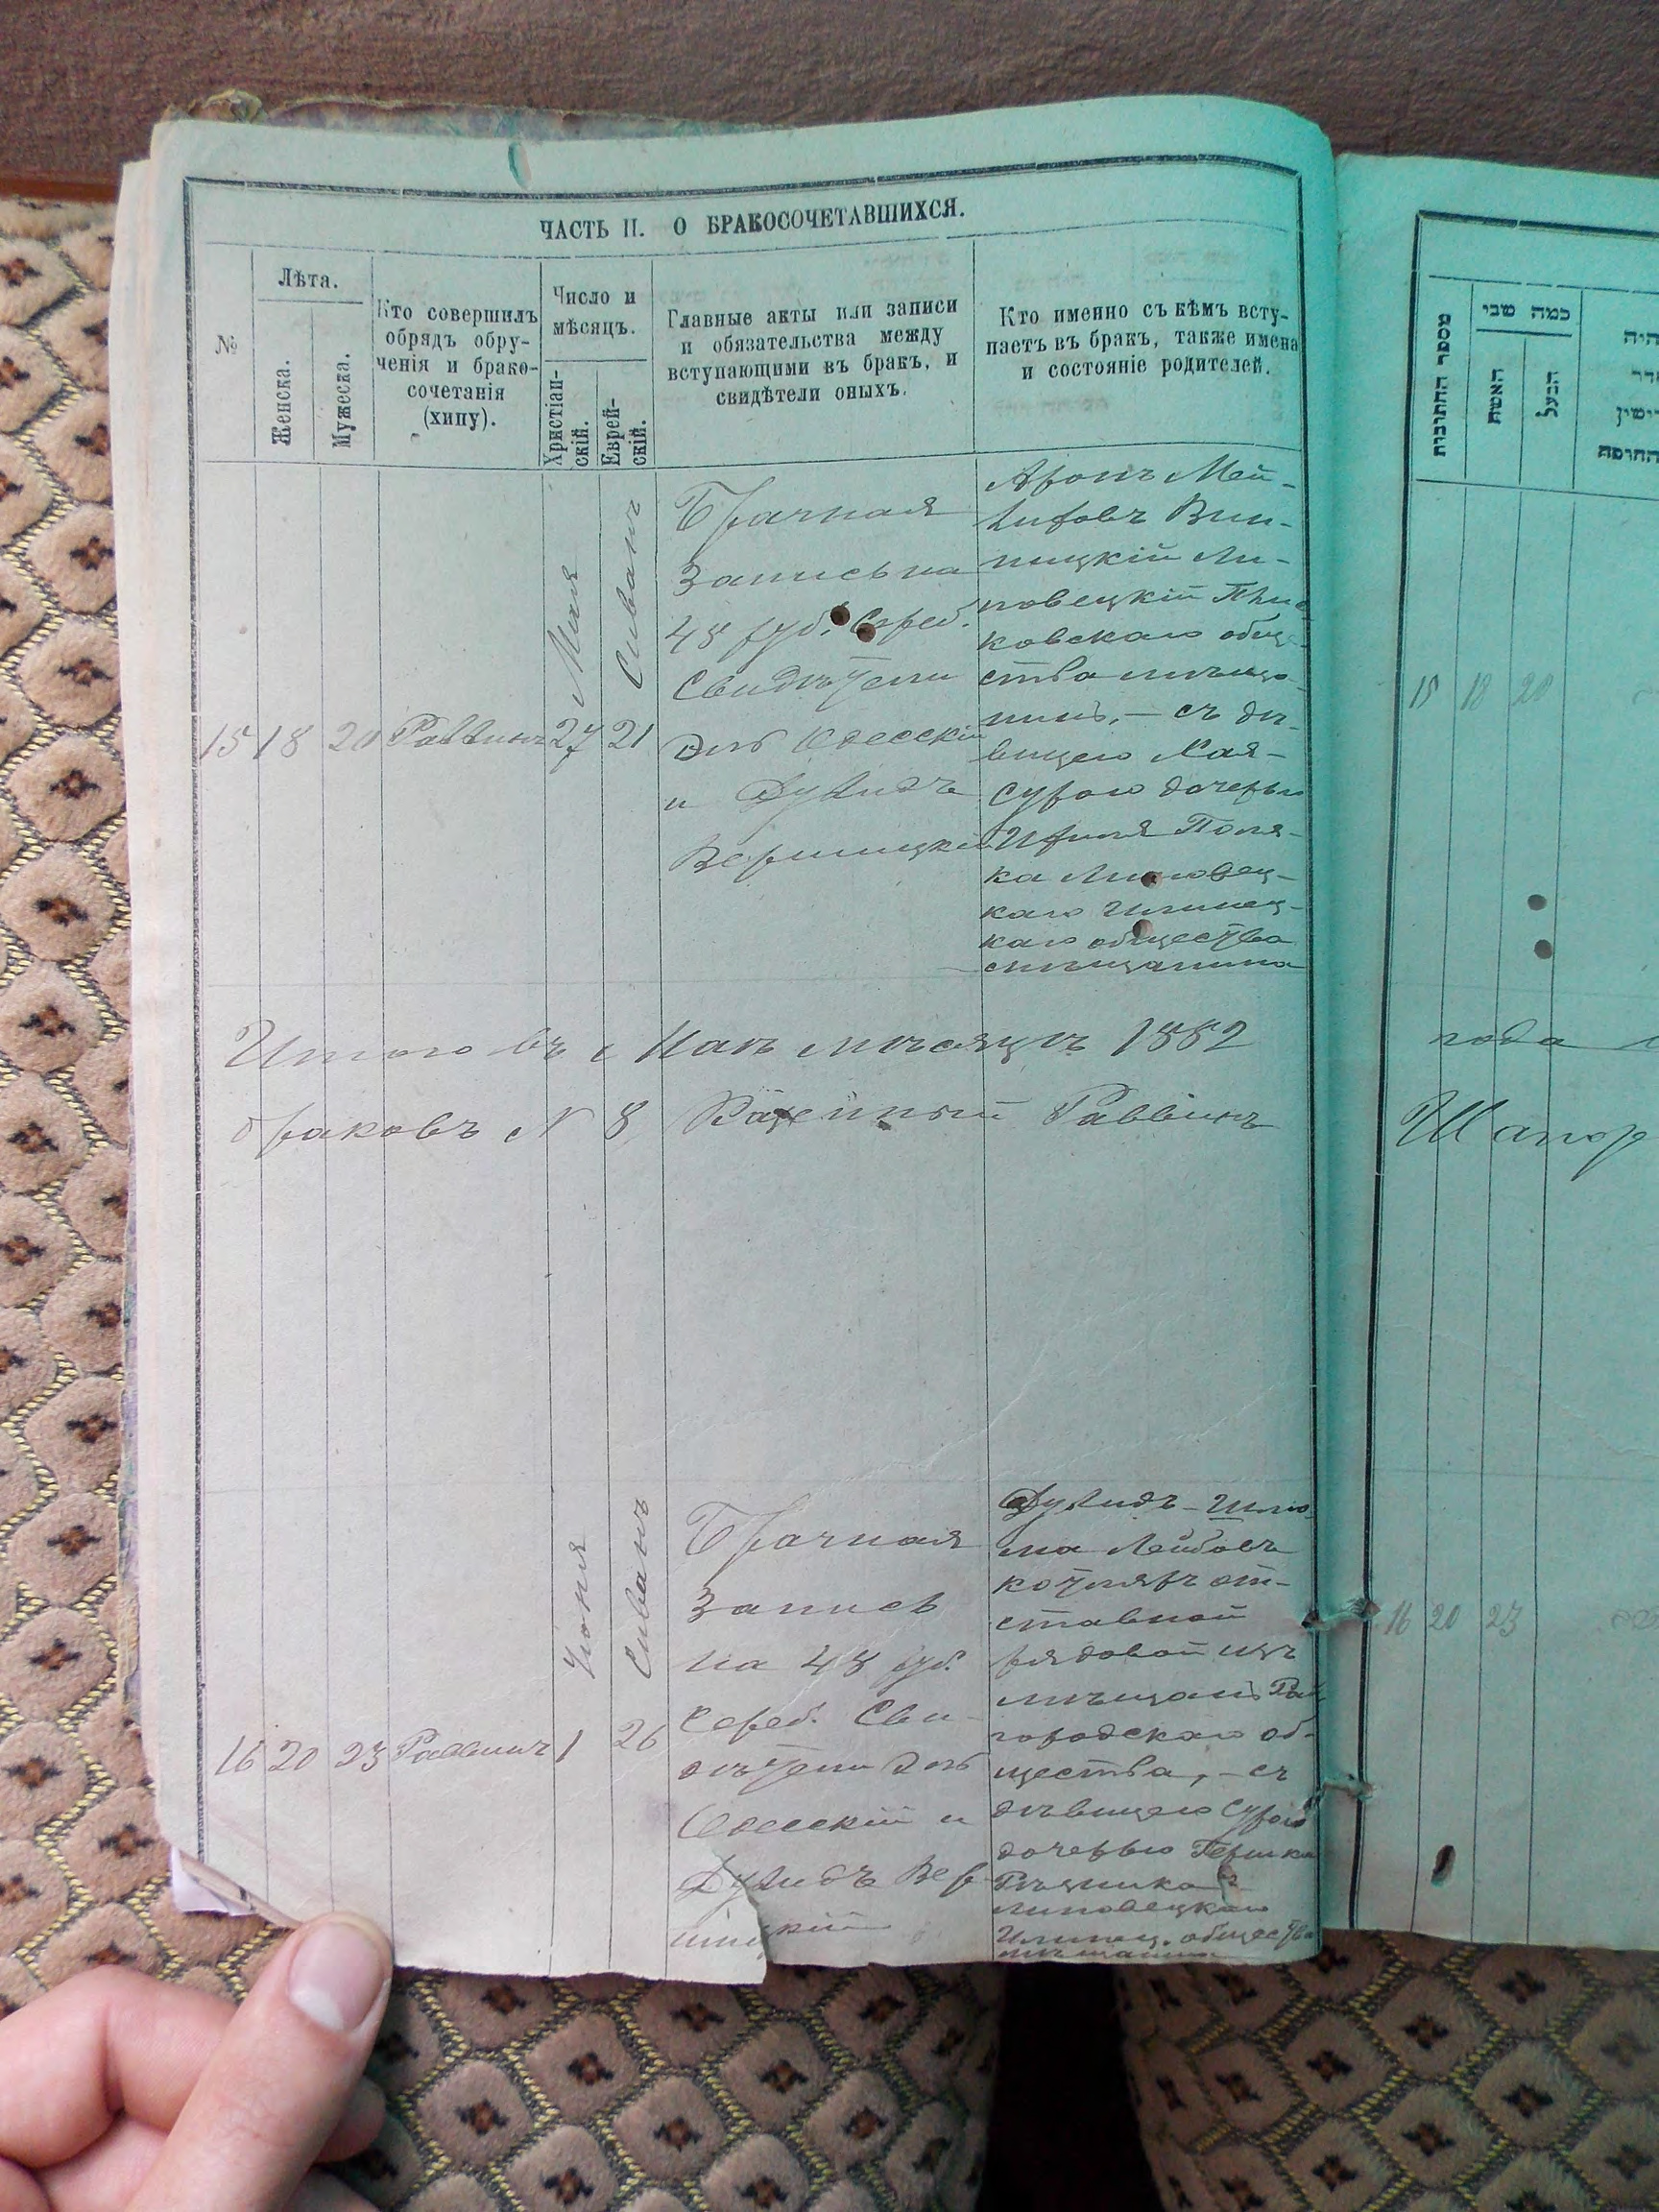 ЧАСТЬ II. О БРАКОСОЧЕТАВШИХСЯ.
№
Лѣта.
Женска.
Мужеска.
Кто совершилъ
обрядъ обру-
ченія и брако-
сочетанія
(хипу).
Число и
мѣсяцъ.
Христіан-
скій.
Еврей-
скій.
Главные акты или записи
и обязательства между
вступающими въ бракъ, и
свидѣтели оныхъ.
Кто именно съ кѣмъ всту-
паетъ въ бракъ, также имена
и состояніе родителей.
15 18 20 Раввинъ 27 21
Мая
Сиванъ
Брачная
Запись на
48 руб. Сереб.
Свидѣтели
Эль Одесскій
и Дувидъ
Вершицкій
Аронъ Мей-
Вин-
ницкій Ли-
повецкій
ковскаго общ
ства мѣща-
нинъ, - съ дѣ-
вицею Хая-
Сурою дочерью
Поля-
ка Липовец-
каго Илинец-
каго общества
мѣщанина
Итого въ Маѣ мѣсяцѣ 1882
браковъ № 8 Казенный Раввинъ
16 20 23 Раввинъ 1 26
Іюня
Сиванъ
Брачная
Запись
на 48 руб.
Сереб. Сви-
дѣтели Эль
Одесскій и
Дувидъ Вер-
шицкій
Дувидъ-Шло-
ма Лейбовъ
Котляръ от-
ставной
рядовой изъ
мѣщанъ
городскаго об-
щества, - съ
дѣвицею Сурою
дочерью Гершка
Рѣзника
Липовецкаго
Илинец. общества
мѣщанина
מספר החתונות
כמה שני
האשה
הבעל
15 18 20
года
16 20 23